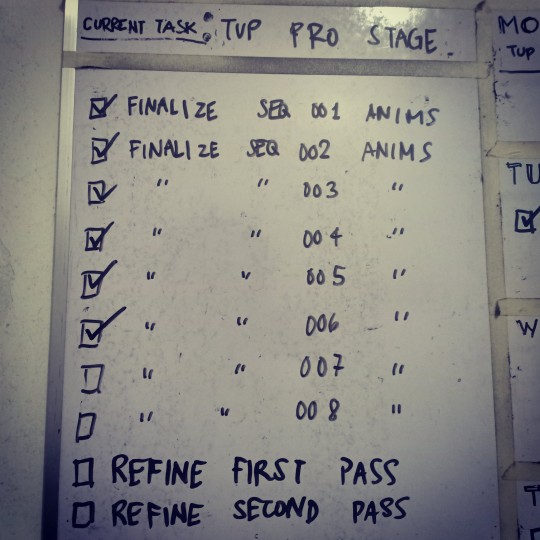 CURRENT TASK: TVP PRO STAGE
☑ FINALIZE SEQ 001 ANIMS
☑ FINALIZE SEQ 002 ANIMS
☑ " " 003 "
☑ " " 004 "
☑ " " 005 "
☑ " " 006 "
☐ " " 007 "
☐ " " 008 "
☐ REFINE FIRST PASS
☐ REFINE SECOND PASS
MO
TVP
TU
☑
W
T